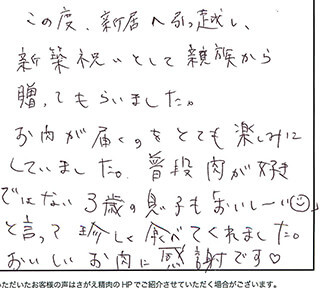 この度、新居へ引っ越し、
新築祝いとして親族から
贈ってもらいました。
お肉が届くのをとても楽しみに
していました。普段肉が好き
ではない3歳の息子も「おいしーい😊」
と言って珍しく食べてくれました。
おいしいお肉に感謝です♡
いただいたお客様の声はさがえ精肉のHPでご紹介させていただく場合がございます。